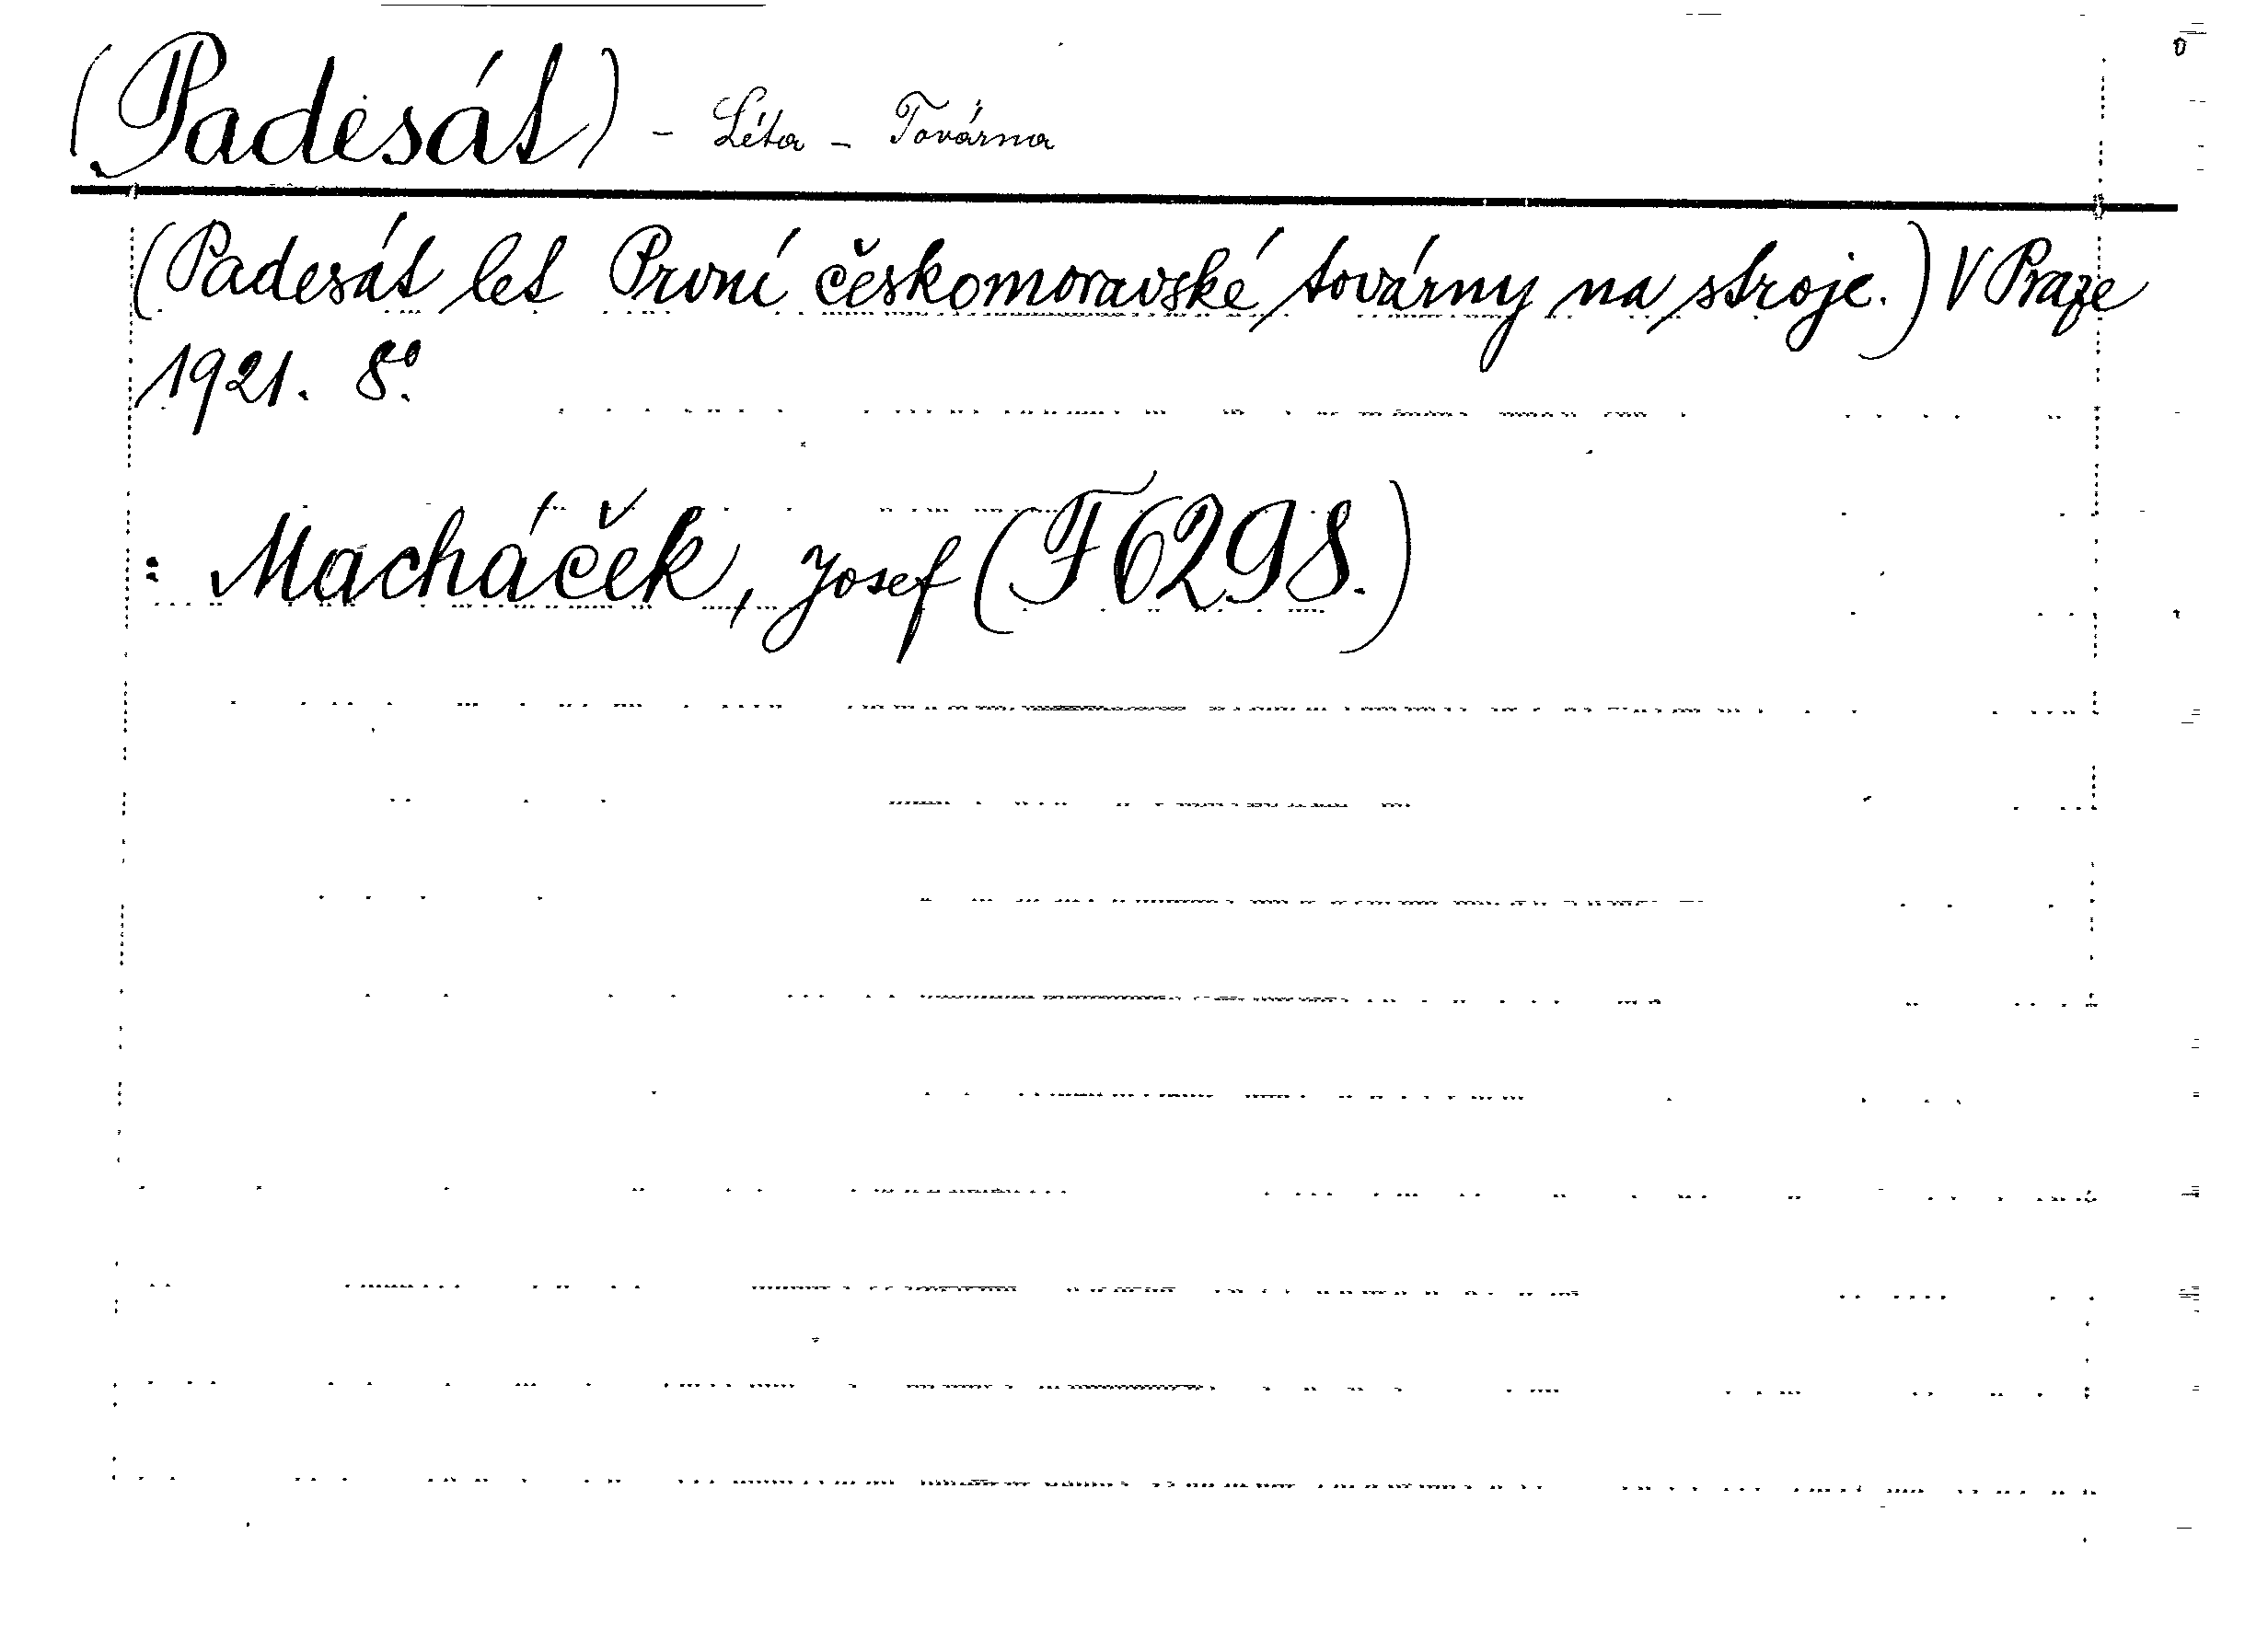 (Padesát) - Léta - Továrna
(Padesát let První českomoravské továrny na stroje.) V Praze
1921. 8°.
: Macháček, Josef (F6298.)